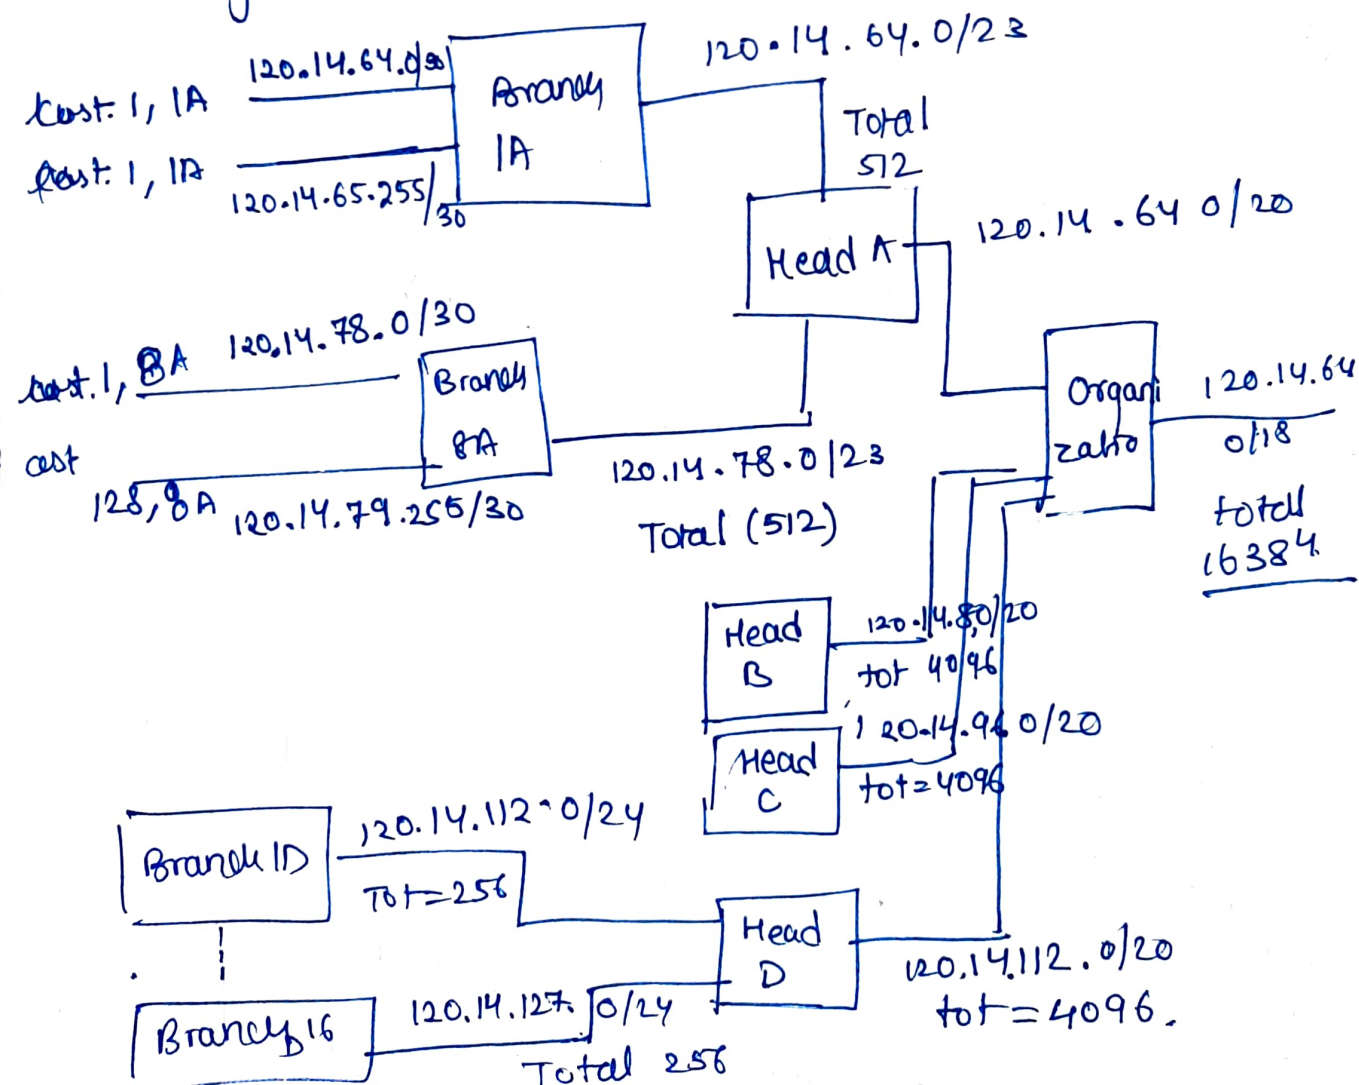 Cust. 1, 1A
120.14.64.0/30
Cust. 1, 1A
120.14.65.255/30
Branch
1A
120.14.64.0/23
Total
512
Head A
120.14.64 0/20
Cust. 1, 8A
120.14.78.0/30
cust
128, 8A
120.14.79.255/30
Branch
8A
120.14.78.0/23
Total (512)
Organi
zatio
120.14.64
0/18
total
16384
Head
B
120.14.80/20
tot 4096
Head
C
120.14.96 0/20
tot=4096
Branch 1D
120.14.112.0/24
Tot=256
Branch D 16
120.14.127.0/24
Total 256
Head
D
120.14.112.0/20
tot=4096.